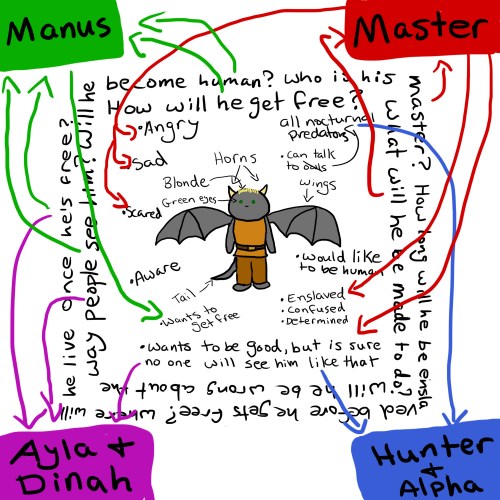 Manus
Master
become human? who is his
master? How long will he be ensla
ved before he gets free? where will
he live once he's free?
How will he get free?
what will he be made to do?
Will he be wrong about the
way people see him? Will he
•Angry
•Sad
•Scared
Horns
Blonde
Green eyes
all nocturnal
predators
•can talk
to owls
wings
•Aware
Tail
•wants to
get free
•would like
to be human
•Enslaved
•Confused
•Determined
•wants to be good, but is sure
no one will see him like that
Ayla +
Dinah
Hunter
+
Alpha